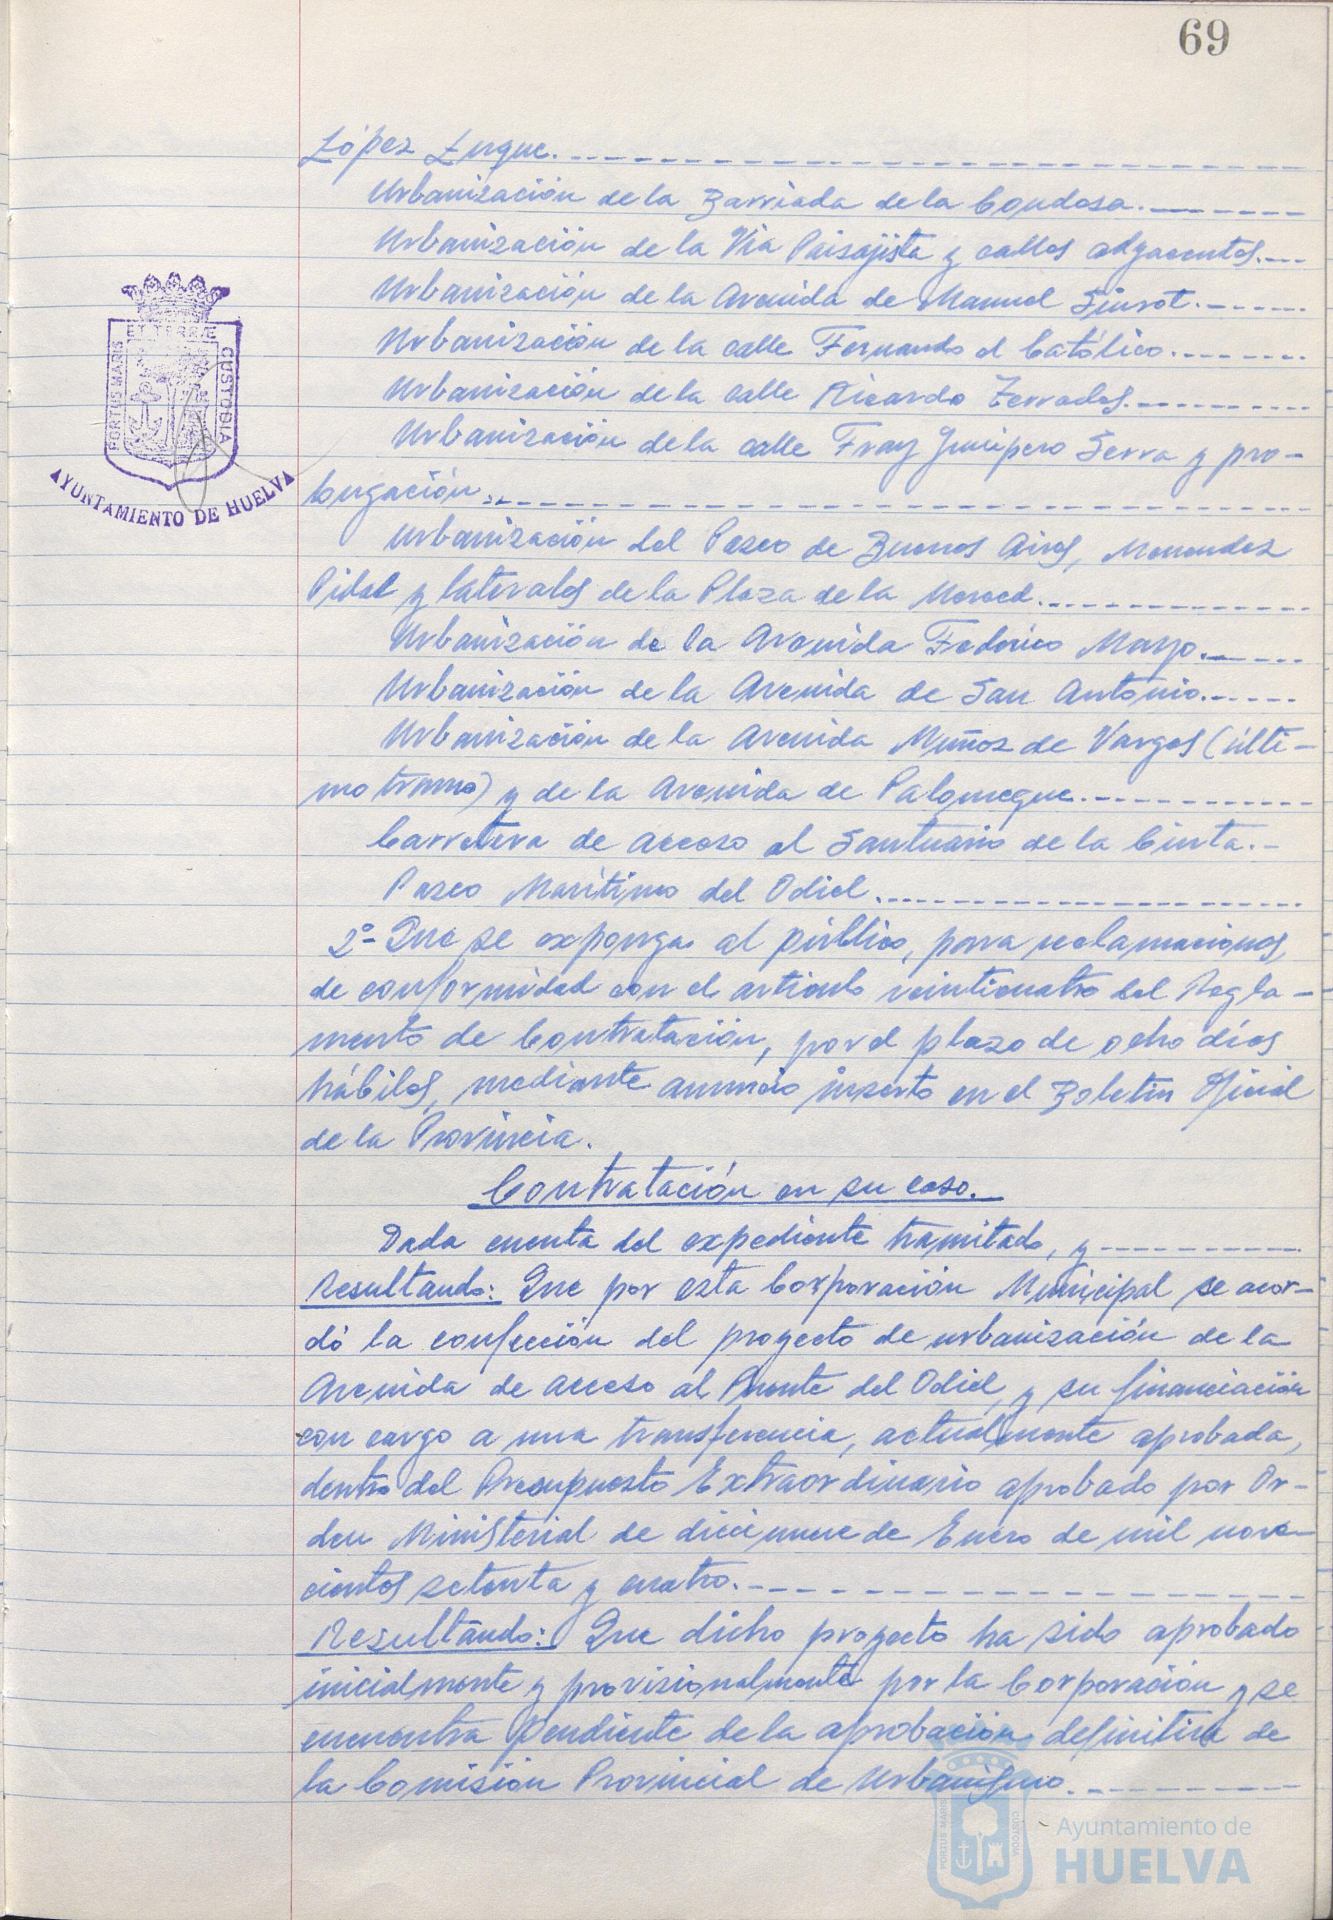 69
López Luque.
Urbanización de la Barriada de la Condesa.
Urbanización de la Vía Paisajista y calles adyacentes.
Urbanización de la Avenida de Manuel Siurot.
Urbanización de la calle Fernando el Católico.
Urbanización de la calle Ricardo Terrades.
Urbanización de la calle Fray Junípero Serra y pro-
longación.
Urbanización del Paseo de Buenos Aires, Menendez
Pidal y laterales de la Plaza de la Merced.
Urbanización de la Avenida Federico Mayo.
Urbanización de la Avenida de San Antonio.
Urbanización de la Avenida Muñoz de Vargas (últi-
mo tramo) y de la Avenida de Palomeque.
Carretera de acceso al Santuario de la Cinta.-
Paseo Marítimo del Odiel.
2º- Que se exponga al público, para reclamaciones,
de conformidad con el artículo veinticuatro del Regla-
mento de Contratación, por el plazo de ocho días
hábiles, mediante anuncio inserto en el Boletín Oficial
de la Provincia.
Contratación en su caso.
Dada cuenta del expediente tramitado, y
Resultando: Que por esta Corporación Municipal se acor-
dó la confección del proyecto de urbanización de la
Avenida de acceso al Puente del Odiel, y su financiación
con cargo a una transferencia, actualmente aprobada,
dentro del Presupuesto Extraordinario aprobado por Or-
den Ministerial de diecinueve de Enero de mil nove-
cientos setenta y cuatro.
Resultando: Que dicho proyecto ha sido aprobado
inicialmente y provisionalmente por la Corporación y se
encuentra pendiente de la aprobación definitiva de
la Comisión Provincial de Urbanismo.
PORTUS MARIS ET TERRÆ CUSTODIA
AYUNTAMIENTO DE HUELVA
PORTUS MARIS CUSTODIA
Ayuntamiento de
HUELVA